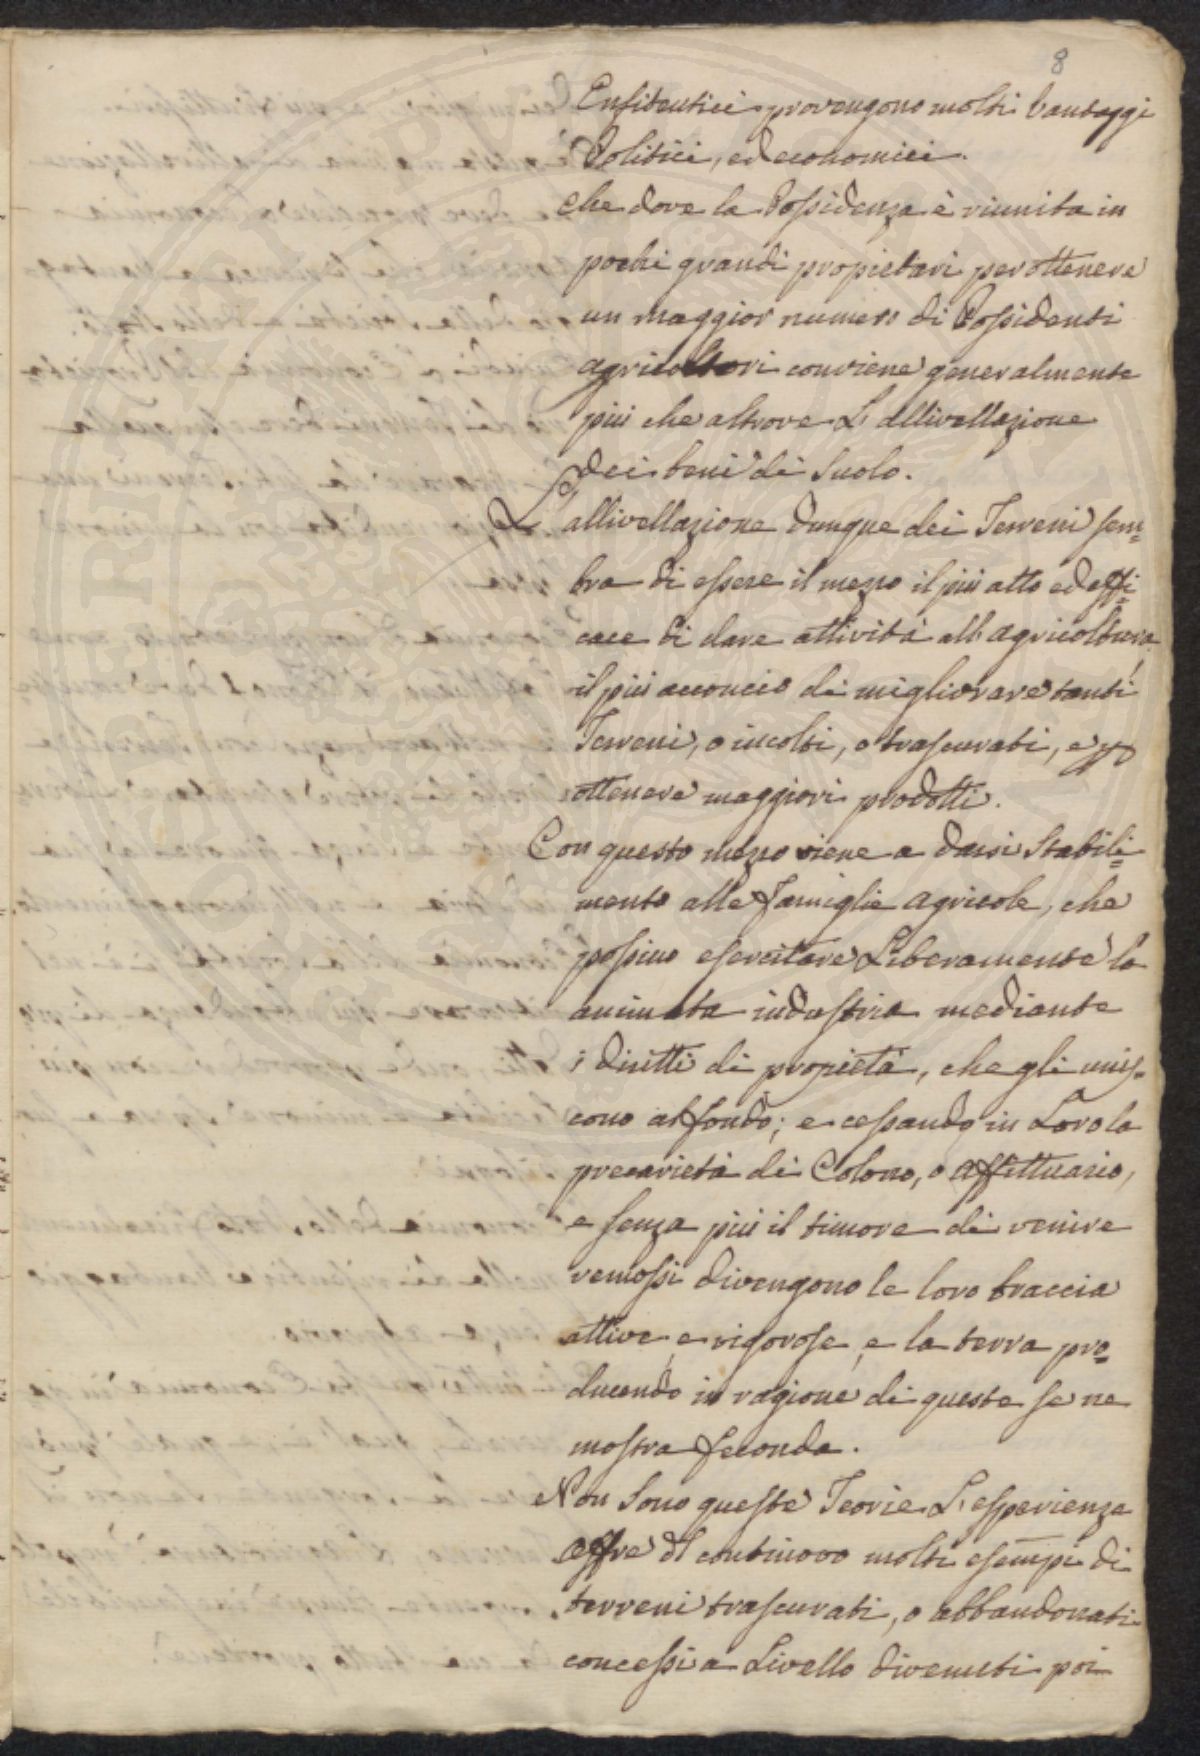 8
Enfiteutici provengono molti Vantaggi
Politici, ed economici.
che dove la Possidenza è riunita in
pochi grandi proprietari per ottenere
un maggior numero di Possidenti
agricoltori conviene generalmente
più che altrove L'allivellazione
dei beni di Suolo.
L'allivellazione dunque dei Terreni sem=
bra di essere il mezzo il più atto ed effi=
cace di dare attività all'agricoltura
il più acconcio di migliorare tanti
Terreni, o incolti, o trascurati, e p
ottenere maggiori prodotti.
Con questo mezzo viene a darsi Stabili=
mento alle famiglie agricole, che
possino esercitare Liberamente la
animata industria mediante
i diritti di proprietà, che gli unis=
cono al fondo; e cessando in Loro la
precarietà di Colono, o affittuario,
e senza più il timore di venire
remossi divengono le loro braccia
attive, e vigorose, e la terra pro=
ducendo in ragione di queste se ne
mostra feconda.
Non Sono queste Teorie L'esperienza
offre di continovo molti esempi di
terreni trascurati, o abbandonati
concessi a Livello divenuti poi